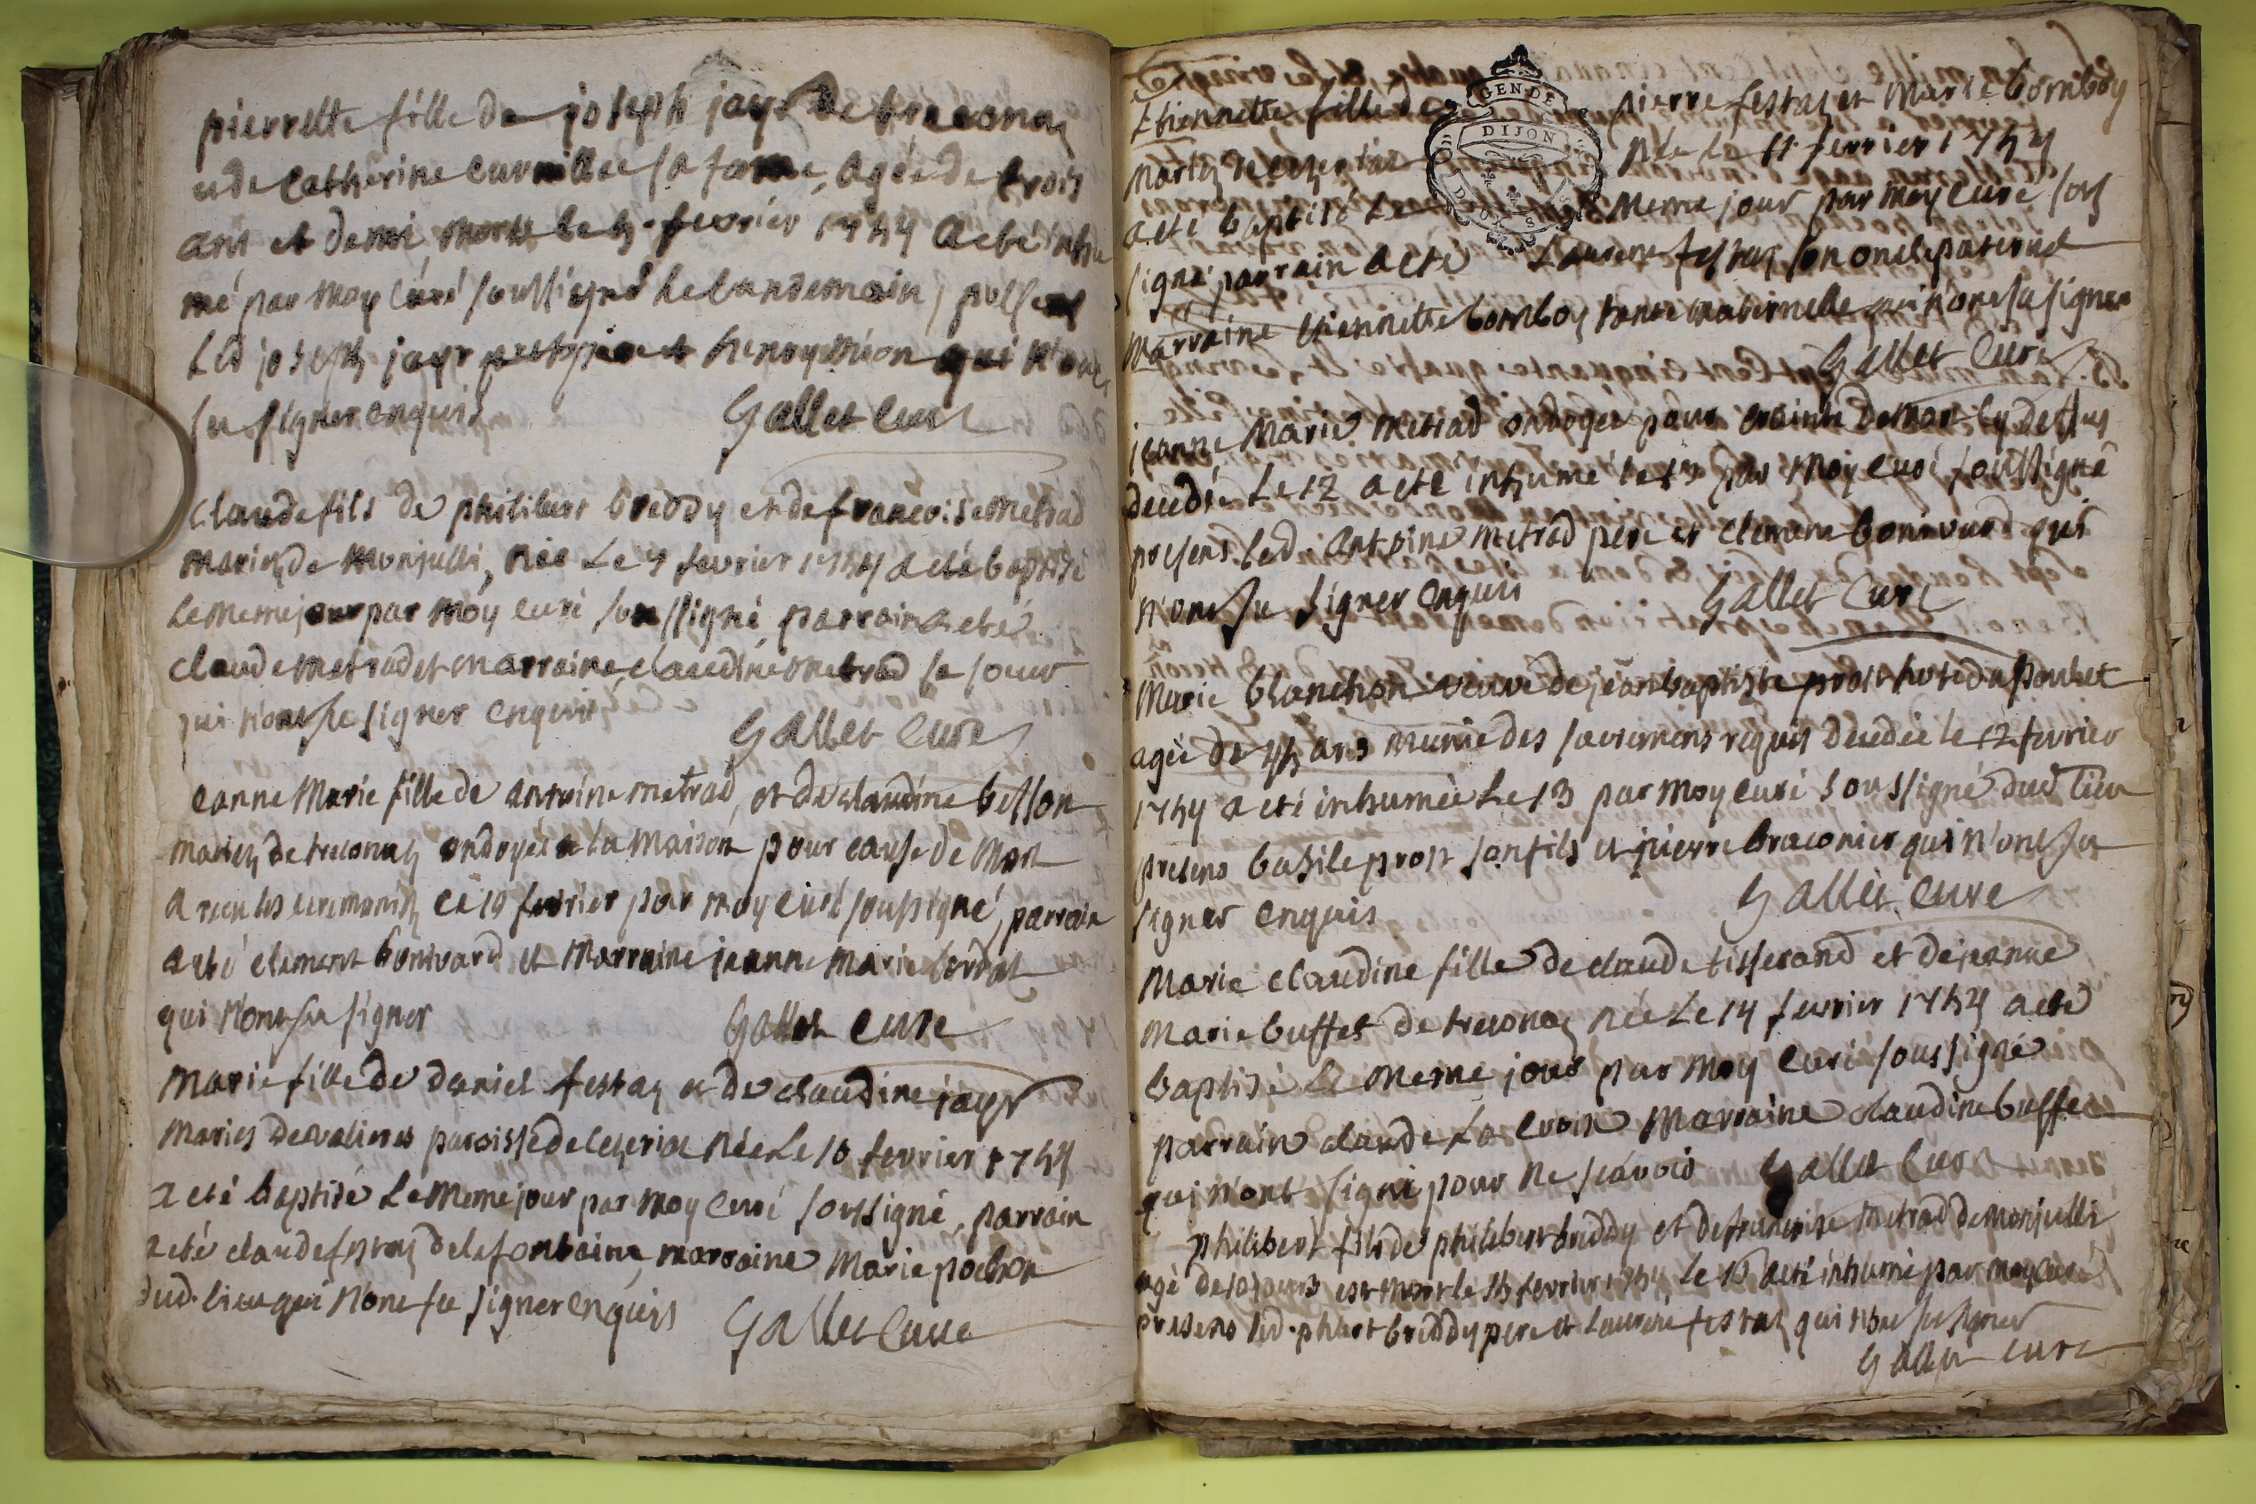 pierrette fille de joseph jayr de treconnaz
et de Catherine cuvillee sa fame, agée de trois
ans et demi, morte le 5 fevrier 1754 a eté inhu
mé par moy curé soussigné Le landemain, présens
Led joseph jayr et henry qui n'ont
su signer enquis Gallet Curé
Claude fils de philibert breddy et de francoise metrad
mariez de monjulli, née Le 7 fevrier 1754 a eté baptisé
Le meme jour par moy curé soussigné, parrain a eté
claude metrad et marraine claudine metrad sa soeur
qui n'ont su signer enquis Gallet Curé
Jeanne Marie fille de antoine metrad, et de claudine besson
mariez de treconnaz ondoyée a la maison pour cause de mort
a receu les ceremoniez ce 10 fevrier par moy curé soussigné, parrain
a eté clement bonivard et marraine jeanne marie
qui n'ont su signer Gallet Curé
Marie fille de daniel festaz et de claudine jayr
mariés de valieres paroisse de ceyzeriat née Le 10 fevrier 1754
a eté baptisé Le meme jour par moy curé soussigné, parrain
a eté claude festaz de la fontaine, marraine Marie pochon
dud. lieu qui n'ont su signer enquis Gallet Curé
Etiennette fille de pierre festaz et Marie bornboy
mariez de ceyzeriat née Le 11 fevrier 1754
a eté baptisé Le meme jour par moy curé sous
signé parrain a eté Laurent festaz son oncle paternel
marraine etiennette bornboy tante maternelle qui n'ont su signer
Gallet Curé
jeanne Marie metrad ondoyée pour crainte de mort cy dessus
decedée Le 12 a eté inhumé le 13 par moy curé soussigné
presens led. antoine metrad pere et clemant bonivard qui
n'ont su signer enquis Gallet Curé
Marie blanchon veuve de jean baptiste prost hote du
agée de 45 ans munie des sacremens requis decedée le 12 fevrier
1754 a eté inhumée Le 13 par moy curé soussigné dud lieu
presens basile prost son fils et pierre braconier qui n'ont su
signer enquis Gallet Curé
Marie claudine fille de claude tisserand et de jeanne
Marie buffet de treconnaz née Le 14 fevrier 1754 a eté
baptisé Le meme jour par moy curé soussigné
parrain claude La croix marraine claudine buffet
qui n'ont signé pour ne scavoir Gallet Curé
philibert fils de philibert breddy et de francoise metrad de monjulli
agé de 10 jours est mort le 15 fevrier 1754 Le 16 a eté inhumé par moy curé
presens led. phbert breddy pere et Laurent festaz qui n'ont su signer
Gallet Curé
GEN DE
DIJON